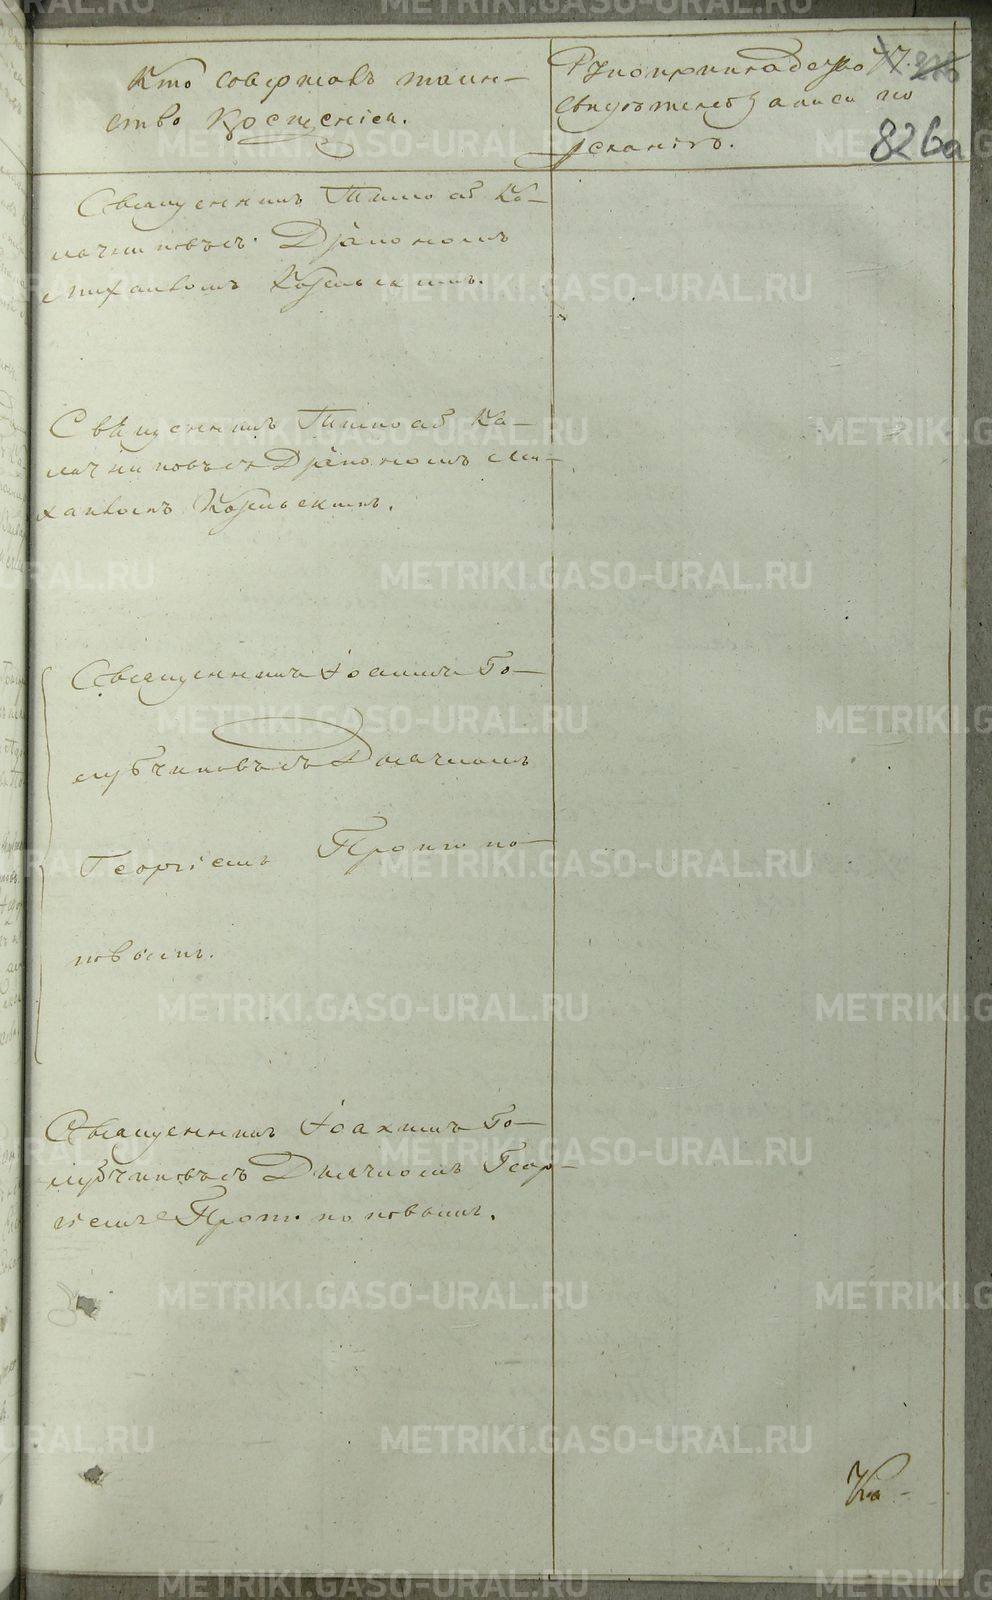 Кто совершалъ таин-
ство Крещенія.
Рукоприкладство
свидѣтелей записи по
желанію.
47.
826а
Священникъ Тимоѳей Ка-
лачниковъ съ Дьякономъ
Михаиломъ
Священникъ Тимоѳей Ка-
лачниковъ съ Дьякономъ Ми-
хаиломъ
Священникъ Іоакимъ Го-
лубчиковъ съ Дьячкомъ
Георгіемъ Протопо-
повымъ.
Священникъ Іоакимъ Го-
лубчиковъ съ Дьячкомъ Геор-
гіемъ Протопоповымъ.
METRIKI.GASO-URAL.RU